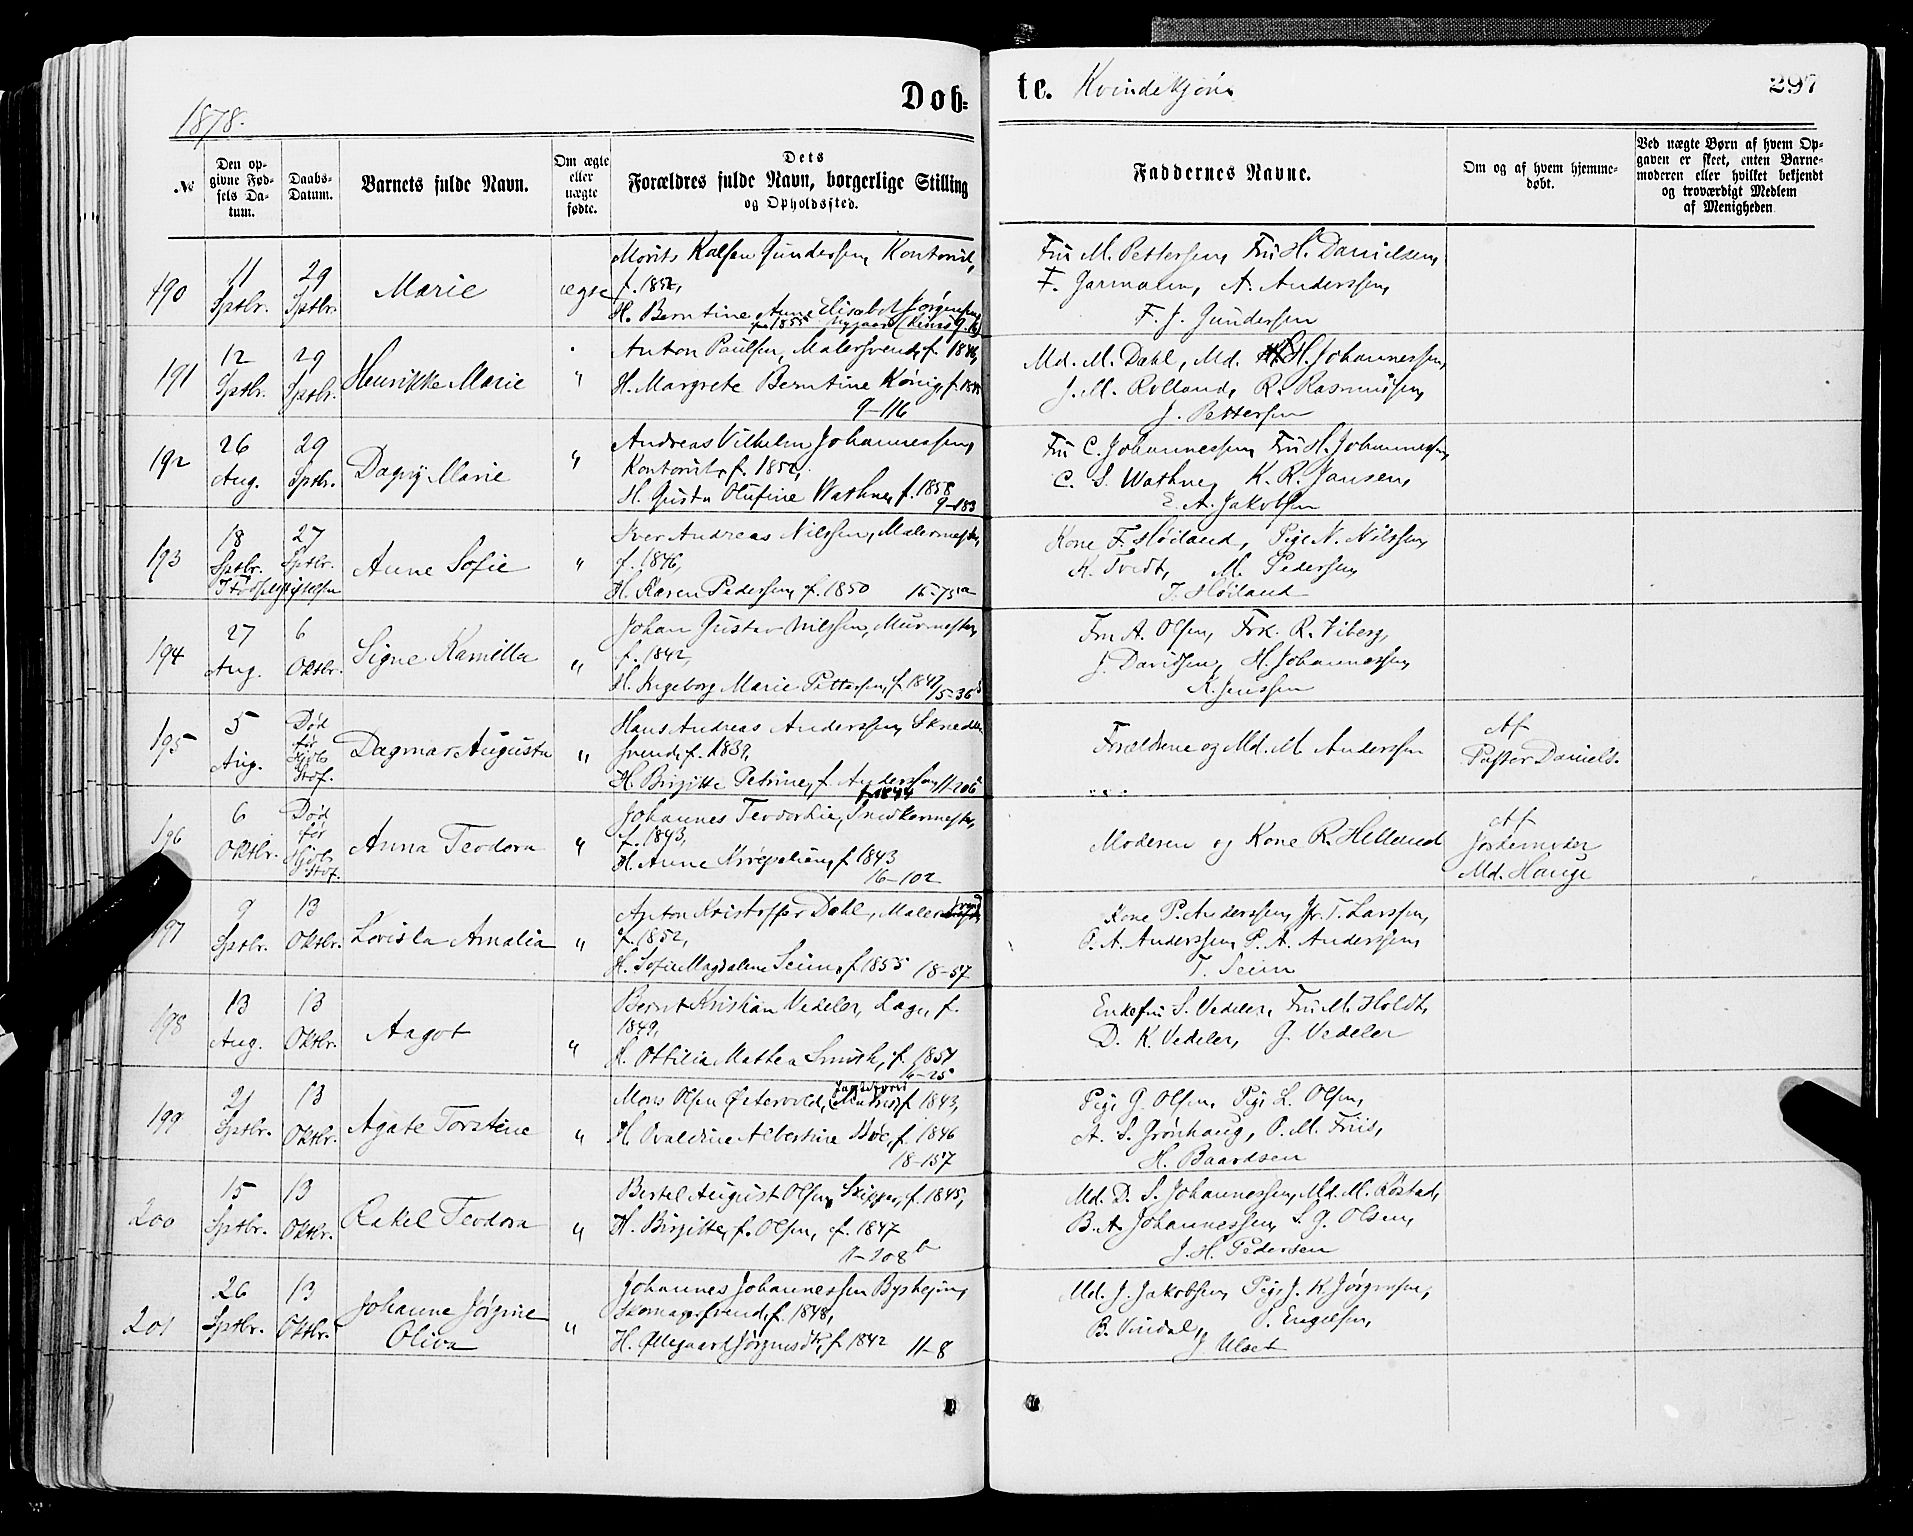 1878.
Døb-
te. Kvindekjøn
297
№
Den op-
givne Fød-
sels Da-
tum.
Daabs-
Datum.
Barnets fulde Navn.
Om ægte
eller
uægte
fødte.
Dets
Forældres fulde Navn, borgerlige Stilling
og Opholdssted.
Faddernes Navne.
Om og af hvem hjemme-
døbt.
Ved uægte Børn af hvem Op-
gaven er skeet, enten Barne-
moderen eller hvilket bekjendt
og troværdigt Medlem
af Menigheden
190
11
Sptbr.
29
Sptbr.
Marie
ægte
Morits Kalsen Gundersen, Kontorist,
f. 1852,
H. Berntine Anne Elisabet Jørgensen
f. 1855
Fru M. Pettersen, Fru H. Danielsen,
F. Jarmann, A. Anderssen,
F. J. Gundersen
191
12
Sptbr.
29
Sptbr.
Henrikke Marie
"
Anton Paulsen, Malersvend, f. 1846,
H. Margrete Berntine König, f.
9-116
Md. M. Dahl, Md. H. Johannessen,
J. M. Rolland, R. Rasmussen,
J. Pettersen
192
26
Aug.
29
Sptbr.
Dagny Marie
"
Andreas Vilhelm Johannessen,
Kontorist, f. 1852,
H. Gusta Olufine Wathne, f. 1858
9-183
Fru C. Johannessen, Fru H. Johannessen,
C. S. Wathne, K. R. Jansen,
E. A. Jakobsen
193
18
Sptbr.
27
Sptbr.
I Fødselsstiftelsen
Anne Sofie
"
Iver Andreas Nilssen, Malermester,
f. 1846,
H. Karen Pedersen, f. 1850 16-75a
Kone F. Høiland, Pige N. Nilssen,
A. Tvedt, M. Pedersen,
J. Høiland
194
27
Aug.
6
Oktbr.
Signe Kamilla
"
Johan Gustav Nilssen, Murmester,
f. 1842,
H. Ingeborg Marie Pettersen, f. 1847
Fru A. Olsen, Frk. R. Viberg,
J. Davidsen, H. Johannessen,
K. Jenssen
195
5
Aug.
Død
før
Kirb.
Stf.
Dagmar Augusta
"
Hans Andreas Anderssen, Skrædder
svend, f. 1839,
H. Birgitte Petrine, f. Anderssen, 11-206
f. 1844
Forældrene og Md. M. Anderssen
Af
Pastor Daniels.
196
6
Oktbr.
Død
før
Kirb.
Stf.
Anna Teodora
"
Johannes Teodor Lie, Snedkermester,
f. 1843,
H. Anne, f. 1843
16-102
Moderen og Kone R. Helland
Af
Jordemoder
Md. Hauge
197
9
Sptbr.
13
Oktbr.
Lovisa Amalia
"
Anton Kristoffer Dahl, Malersvend
f. 1852,
H. Sofie Magdalene Seim, f. 1855 18-57
Kone P. Anderssen, Jfr. T. Larssen,
O. A. Anderssen, P. A. Anderssen,
T. Seim
198
13
Aug.
13
Oktbr.
Aagot
"
Bernt Kristian Vedeler, Læge, f.
1849,
H. Ottilia Mathea Smith, f. 1854
16-25
Enkefru S. Vedeler, Fru M. Holdt,
D. K. Vedeler, G. Vedeler
199
21
Sptbr.
13
Oktbr.
Agate Torstine
"
Mons Olsen Østervold, f. 1843,
H. Ovaldine Albertine Bøe, f. 1846
18-157
Pige G. Olsen, Pige L. Olsen,
A. S. Grønhaug, O. M. Friis,
H. Baardsen
200
15
Sptbr.
13
Oktbr.
Rakel Teodora
"
Bertel August Olsen, Skipper, f. 1845,
H. Birgitte, f. Olsen, f. 1847
11-208b
Md. D. S. Johannessen, Md. M. Røstad,
B. A. Johannessen, S. G. Olsen,
J. H. Pedersen
201
26
Sptbr.
13
Oktbr.
Johanne Jørgine
Oliva
"
Johannes Johannessen Bysheim,
Skomagersvend, f. 1848,
H. Øllegaard Jørgensdtr, f. 1842 11-8
Md. J. Jakobsen, Pige J. K. Jørgensen,
B. Vindal, O. Engelsen,
J. Ulset